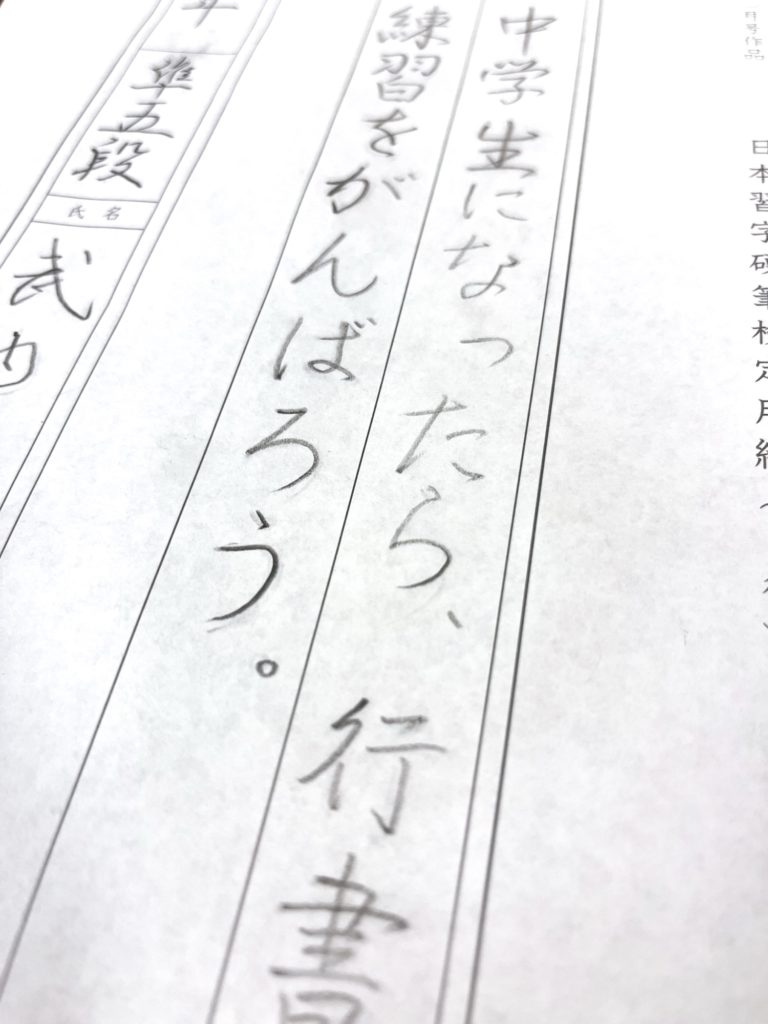 月号作品
日本習字硬筆検定用紙
中学生になったら、行書
練習をがんばろう。
準五段
氏名
武